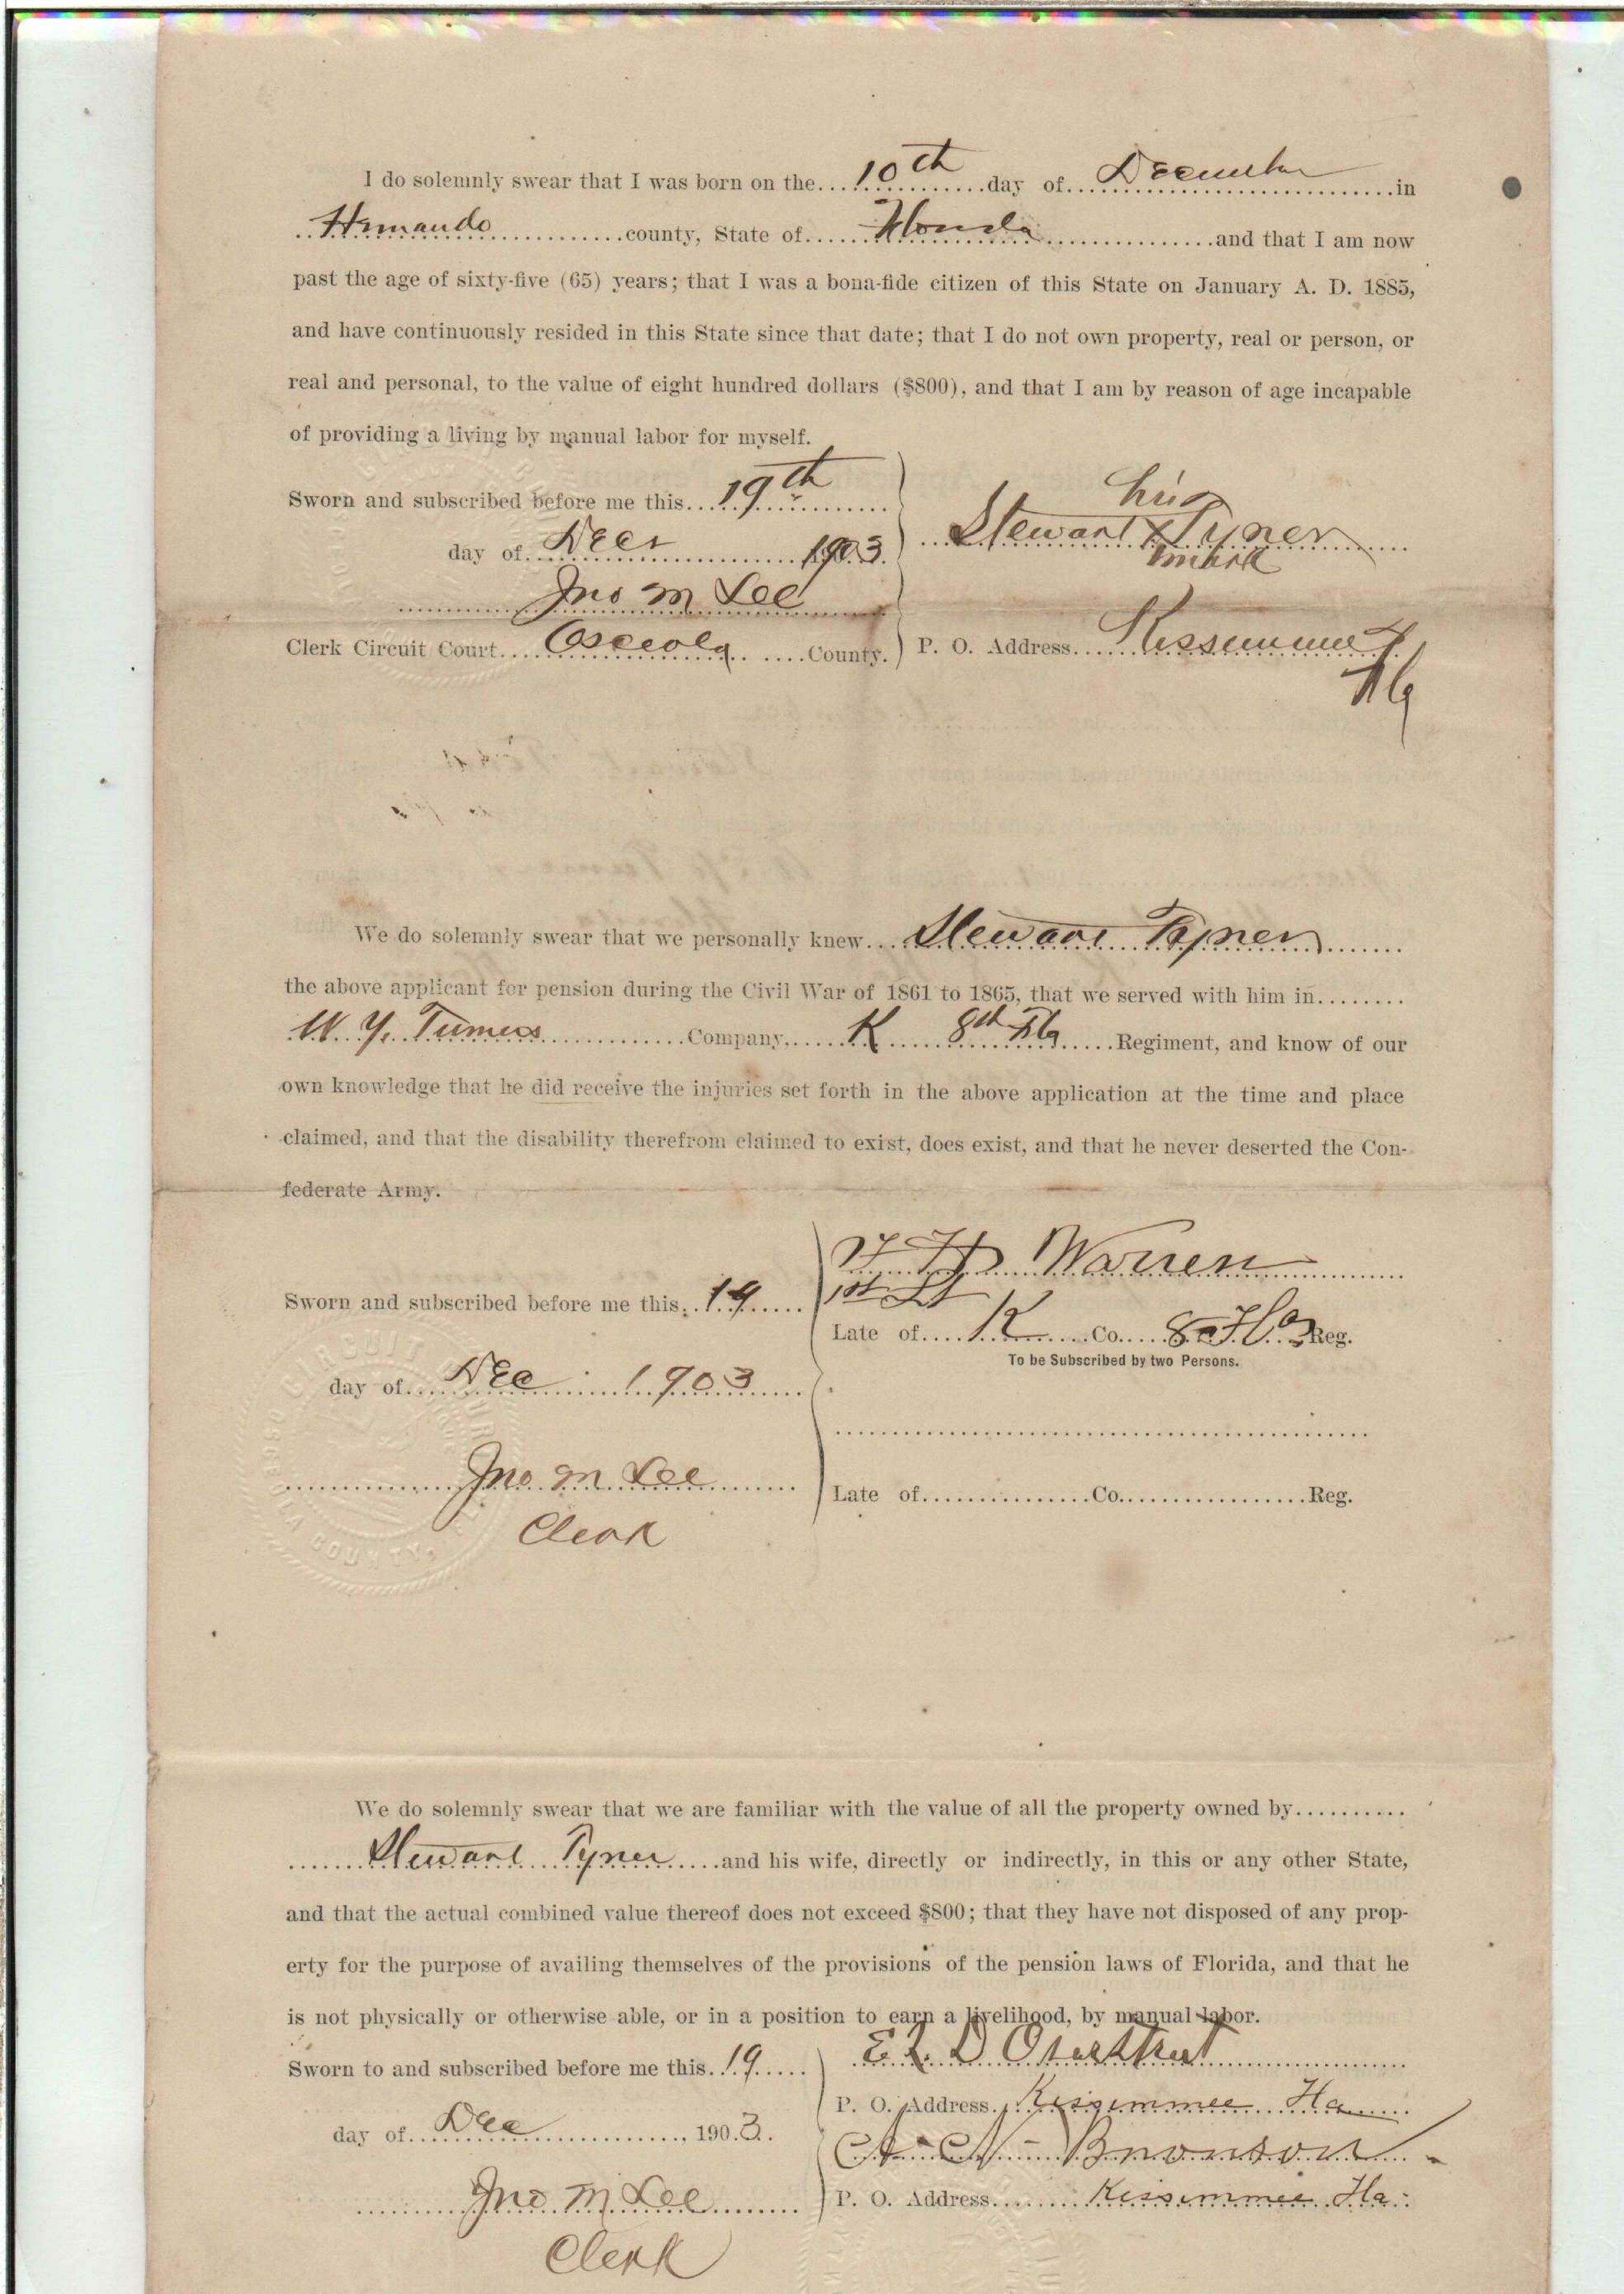 I do solemnly swear that I was born on the....10th..........day of..December..........in
..Hernando..............county, State of......Florida..................and that I am now
past the age of sixty-five (65) years; that I was a bona-fide citizen of this State on January A. D. 1885,
and have continuously resided in this State since that date; that I do not own property, real or person, or
real and personal, to the value of eight hundred dollars ($800), and that I am by reason of age incapable
of providing a living by manual labor for myself.
Sworn and subscribed before me this...19th..........
his
day of..Decr..............1903.
Stewart x Tyner
mark
Jno M Lee
Clerk Circuit Court....Osceola......County.
P. O. Address......Kissimmee
Fla
We do solemnly swear that we personally knew....Stewart Tyner........
the above applicant for pension during the Civil War of 1861 to 1865, that we served with him in........
W. Y. ..............Company,......K......8th Fla......Regiment, and know of our
own knowledge that he did receive the injuries set forth in the above application at the time and place
claimed, and that the disability therefrom claimed to exist, does exist, and that he never deserted the Con-
federate Army.
Warren
Sworn and subscribed before me this..19......
1st Lt
Late of....K......Co.....8 Fla Reg.
To be Subscribed by two Persons.
day of....Dec......1903......
Jno M Lee
Late of................Co..................Reg.
Clerk
CIRCUIT COURT
OSCEOLA COUNTY,
We do solemnly swear that we are familiar with the value of all the property owned by..........
......Stewart Tyner.....and his wife, directly or indirectly, in this or any other State,
and that the actual combined value thereof does not exceed $800; that they have not disposed of any prop-
erty for the purpose of availing themselves of the provisions of the pension laws of Florida, and that he
is not physically or otherwise able, or in a position to earn a livelihood, by manual labor.
Sworn to and subscribed before me this..19.....
E. L. D Overstreet
P. O. Address..Kissimmee Fla
day of..Dec................, 1903.
A. N. Bronson
Jno M Lee
P. O. Address........Kissimmee Fla.
Clerk